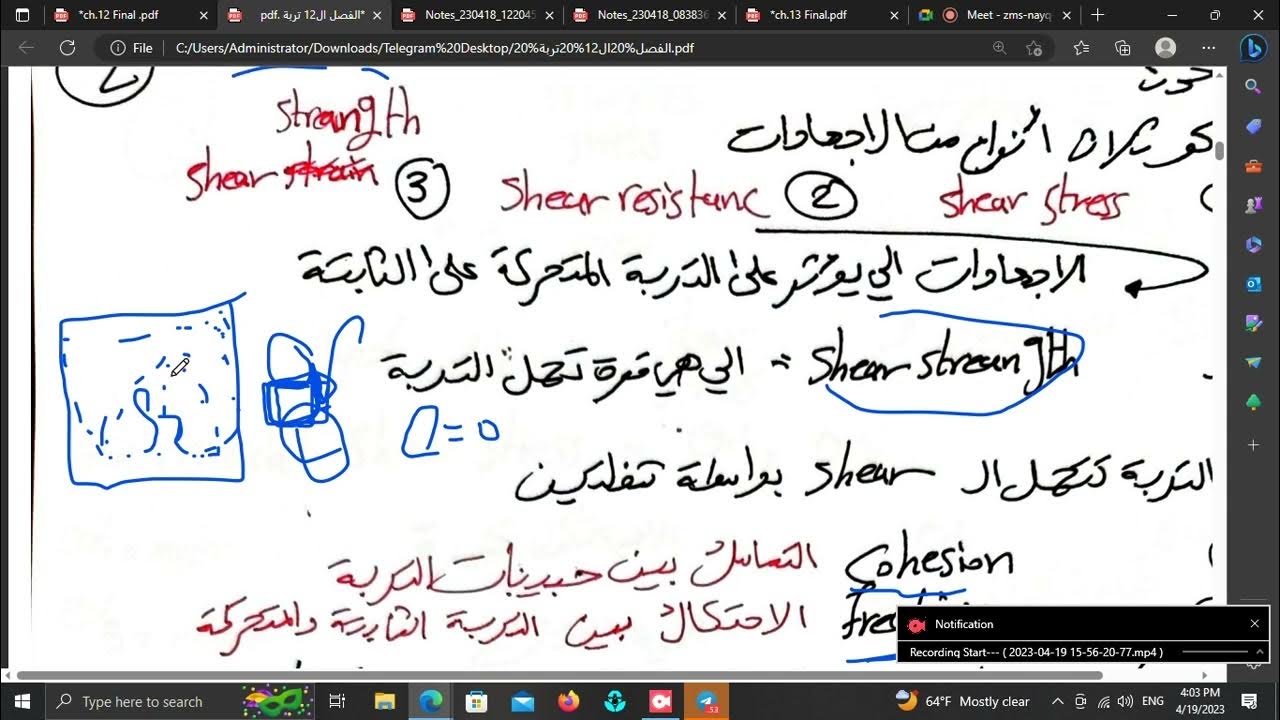 *ch.12 Final .pdf
الفصل ال12 تربة .pdf*
Notes_230418_122045
Notes_230418_083836
*ch.13 Final.pdf
Meet - zms-nayq
File
C:/Users/Administrator/Downloads/Telegram%20Desktop/الفصل%20ال12%20تربة%20.pdf
2
strength
انواع من الاجهادات
shear strain 3 Shear resistanc 2 shear stress
الاجهادات الي يوثر على التربة المتحركة على الثابتة
Shear streangth = الي هي قدرة تحمل التربة
C = 0
التربة تتحمل ال shear بواسطة
Cohesion التماسك بين حبيبات التربة
الاحتكاك بين التربة الثابتة والمتحركة
Notification
Recording Start--- ( 2023-04-19 15-56-20-77.mp4 )
Type here to search
53
64°F Mostly clear
ENG
4:03 PM
4/19/2023